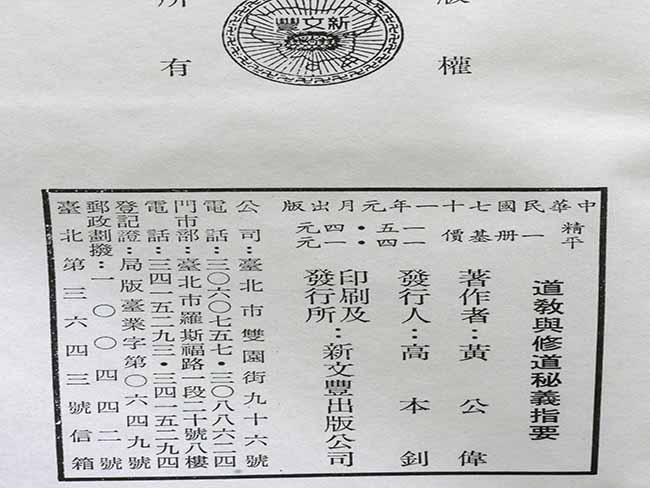 版權
所有
新文豐
道教與修道秘義指要
中華民國七十一年元月出版
精 一五・四元
一册基價
平 一四・一元
著作者：黃公偉
發行人：高本釗
印刷及
發行所：新文豐出版公司
公司：臺北市雙園街九十六號
電話：三〇六〇七五七・三〇八八六二四
門市部：臺北市羅斯福路一段二十號八樓
電話：三四一五二九三・三四一五二九四
登記證：局版臺業字第〇六四九號
郵政劃撥：一〇〇四四二號
臺北第三六四三號信箱